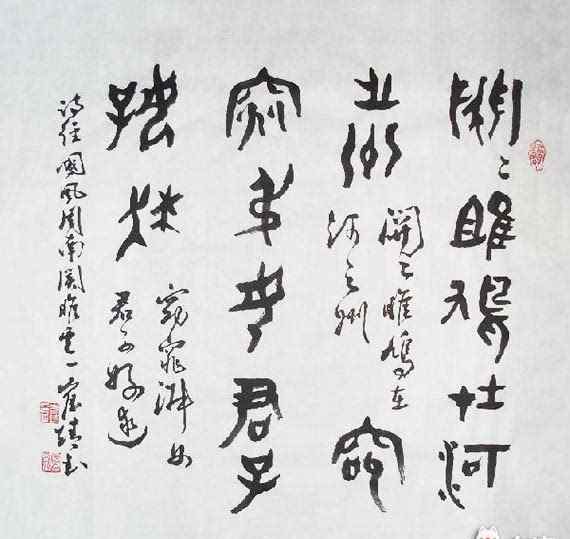 關〻雎鳩在河
之州
關〻雎鳩在
河之州
窈
窕淑女君子
好逑
窈窕淑女
君子好逑
詩經國風周南關雎 崔靖書